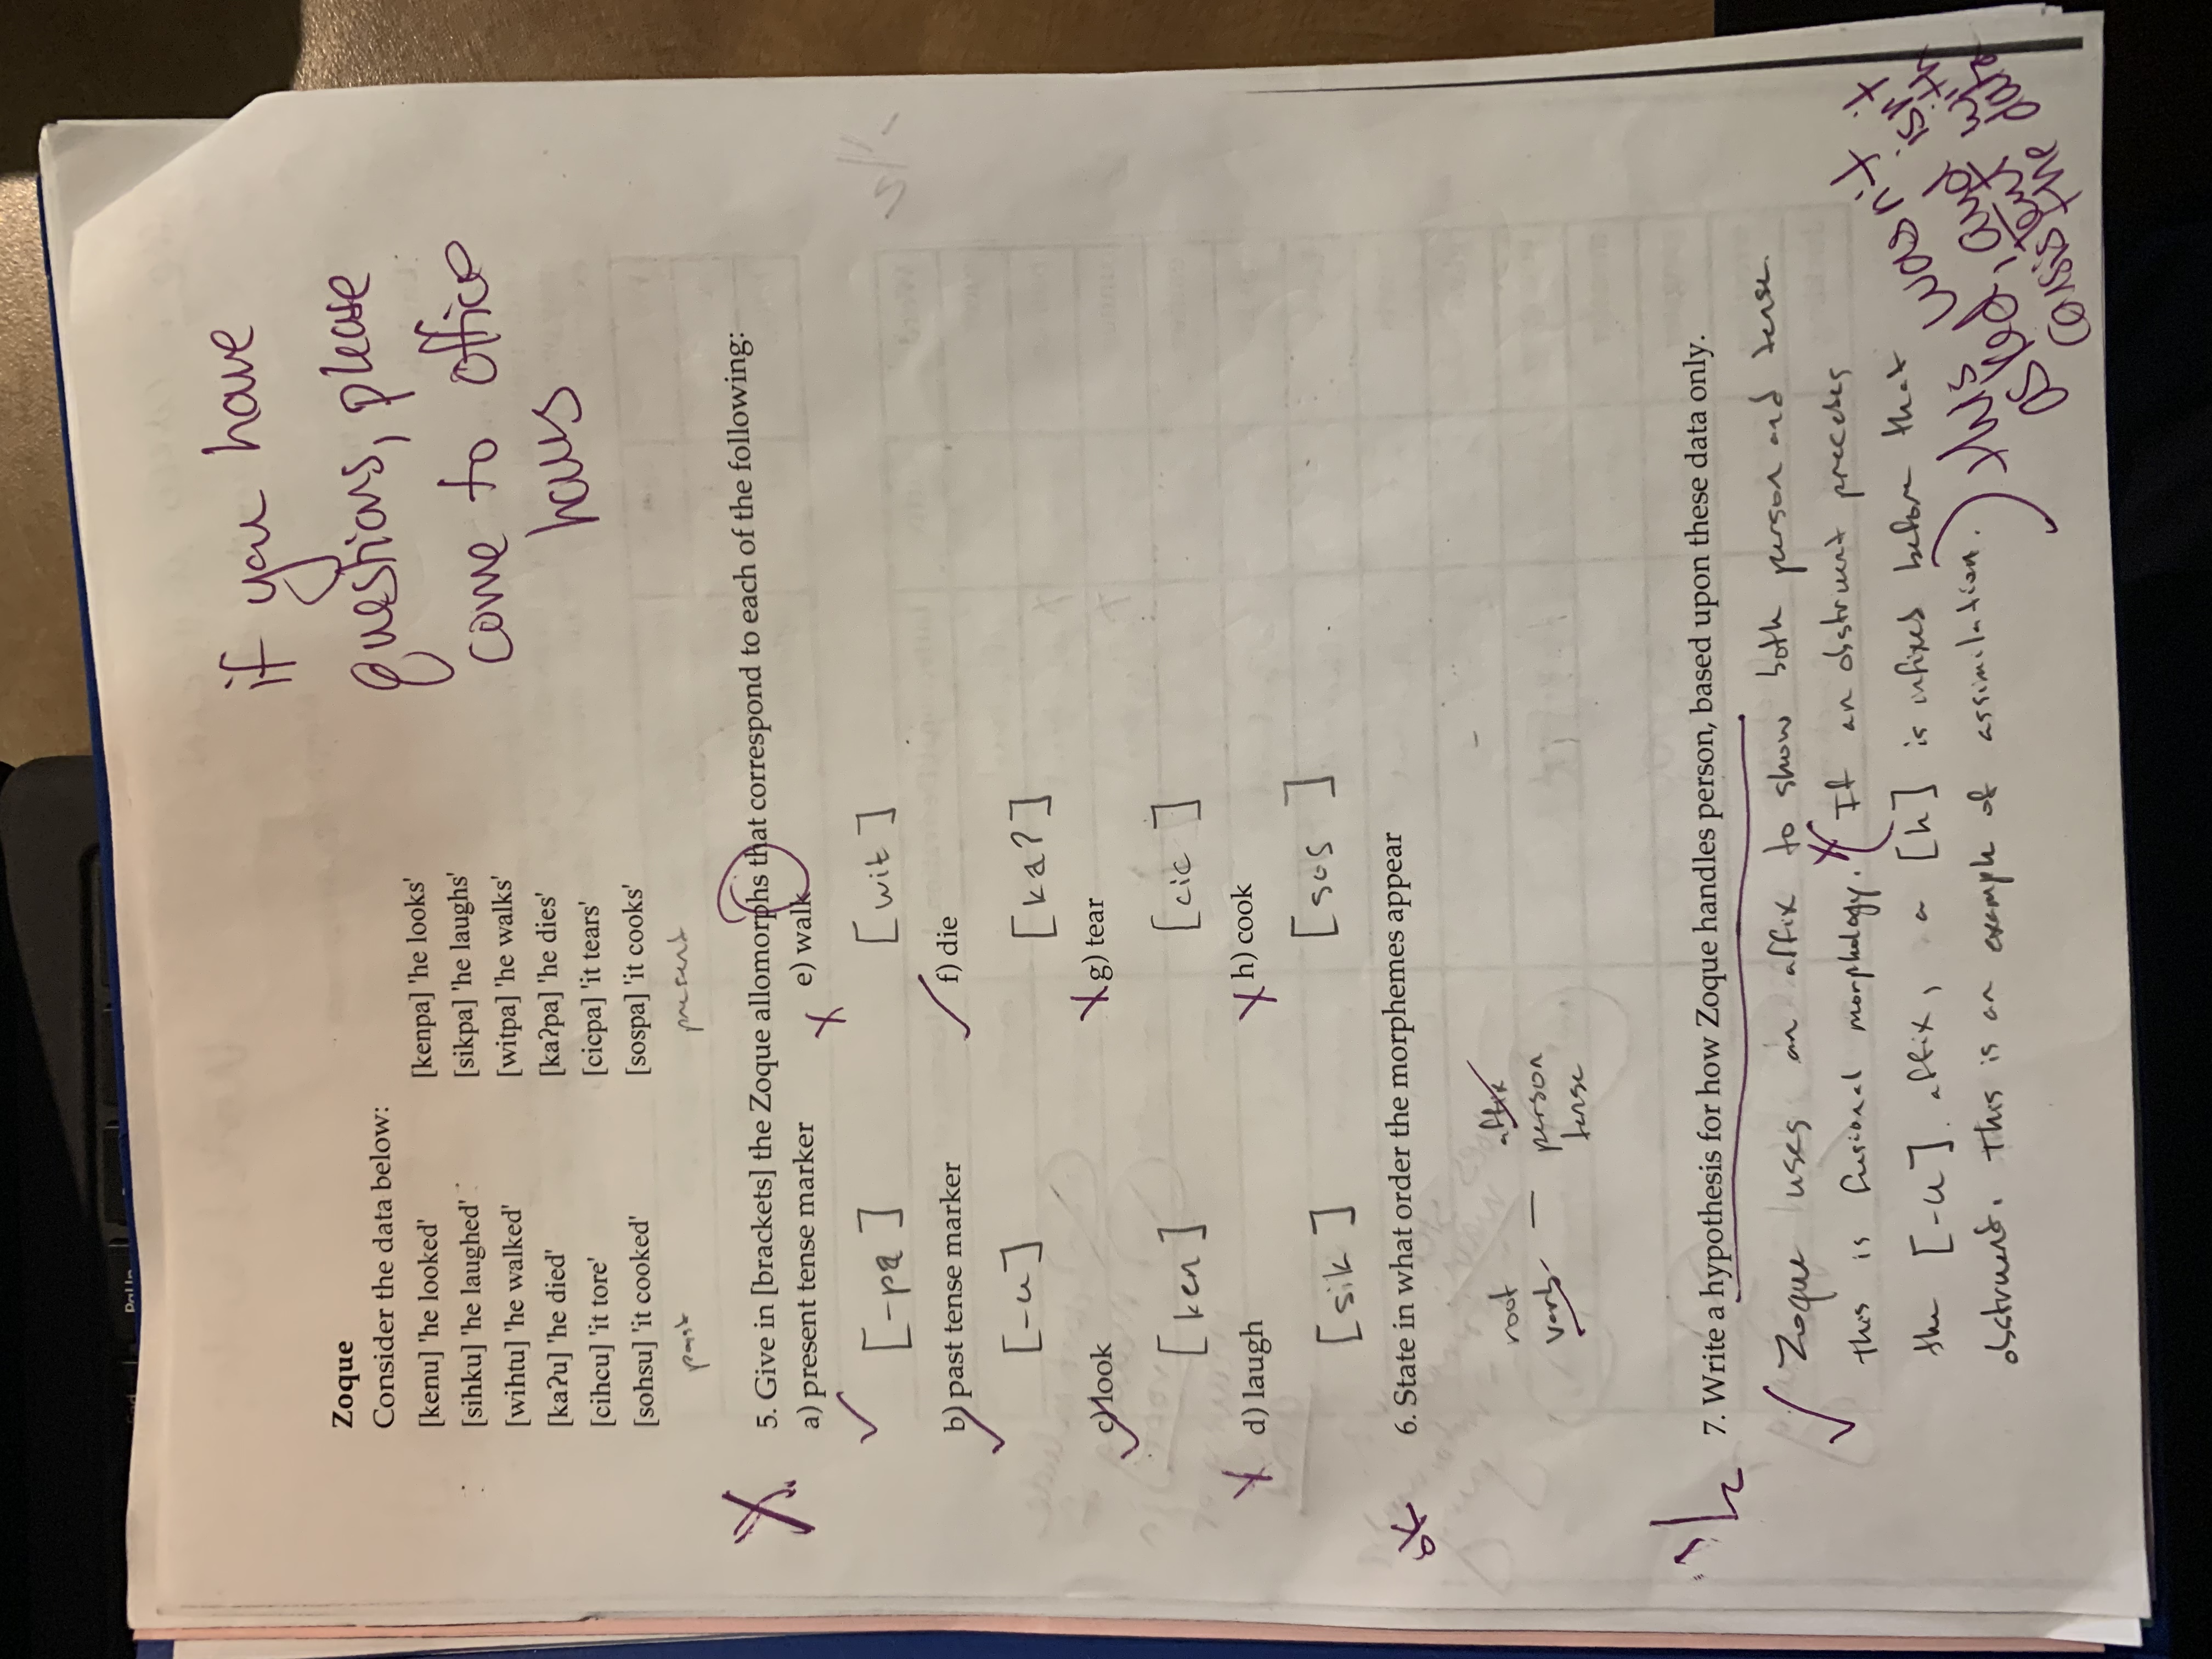 PgUp
if you have
questions, please
come to office
hours
Zoque
Consider the data below:
[kenu] 'he looked' [kenpa] 'he looks'
[sihku] 'he laughed' [sikpa] 'he laughs'
[wihtu] 'he walked' [witpa] 'he walks'
[kaʔu] 'he died' [kaʔpa] 'he dies'
[cihcu] 'it tore' [cicpa] 'it tears'
[sohsu] 'it cooked' [sospa] 'it cooks'
past present
X 5. Give in [brackets] the Zoque allomorphs that correspond to each of the following:
a) present tense marker X e) walk
✓ [-pa] [wit]
b) past tense marker ✓ f) die
✓ [-u] [kaʔ]
c) look X g) tear
✓ [ken] [cic]
X d) laugh X h) cook
[sik] [sos]
ok 6. State in what order the morphemes appear
root affix
verb — person
tense
7. Write a hypothesis for how Zoque handles person, based upon these data only.
✓ Zoque uses an affix to show both person and tense.
this is fusional morphology. X (If an obstruent precedes
the [-u] affix, a [h] is infixed before that
obstruent. This is an example of assimilation.)
this wasn't
asked, and isn't
consistent with
the data